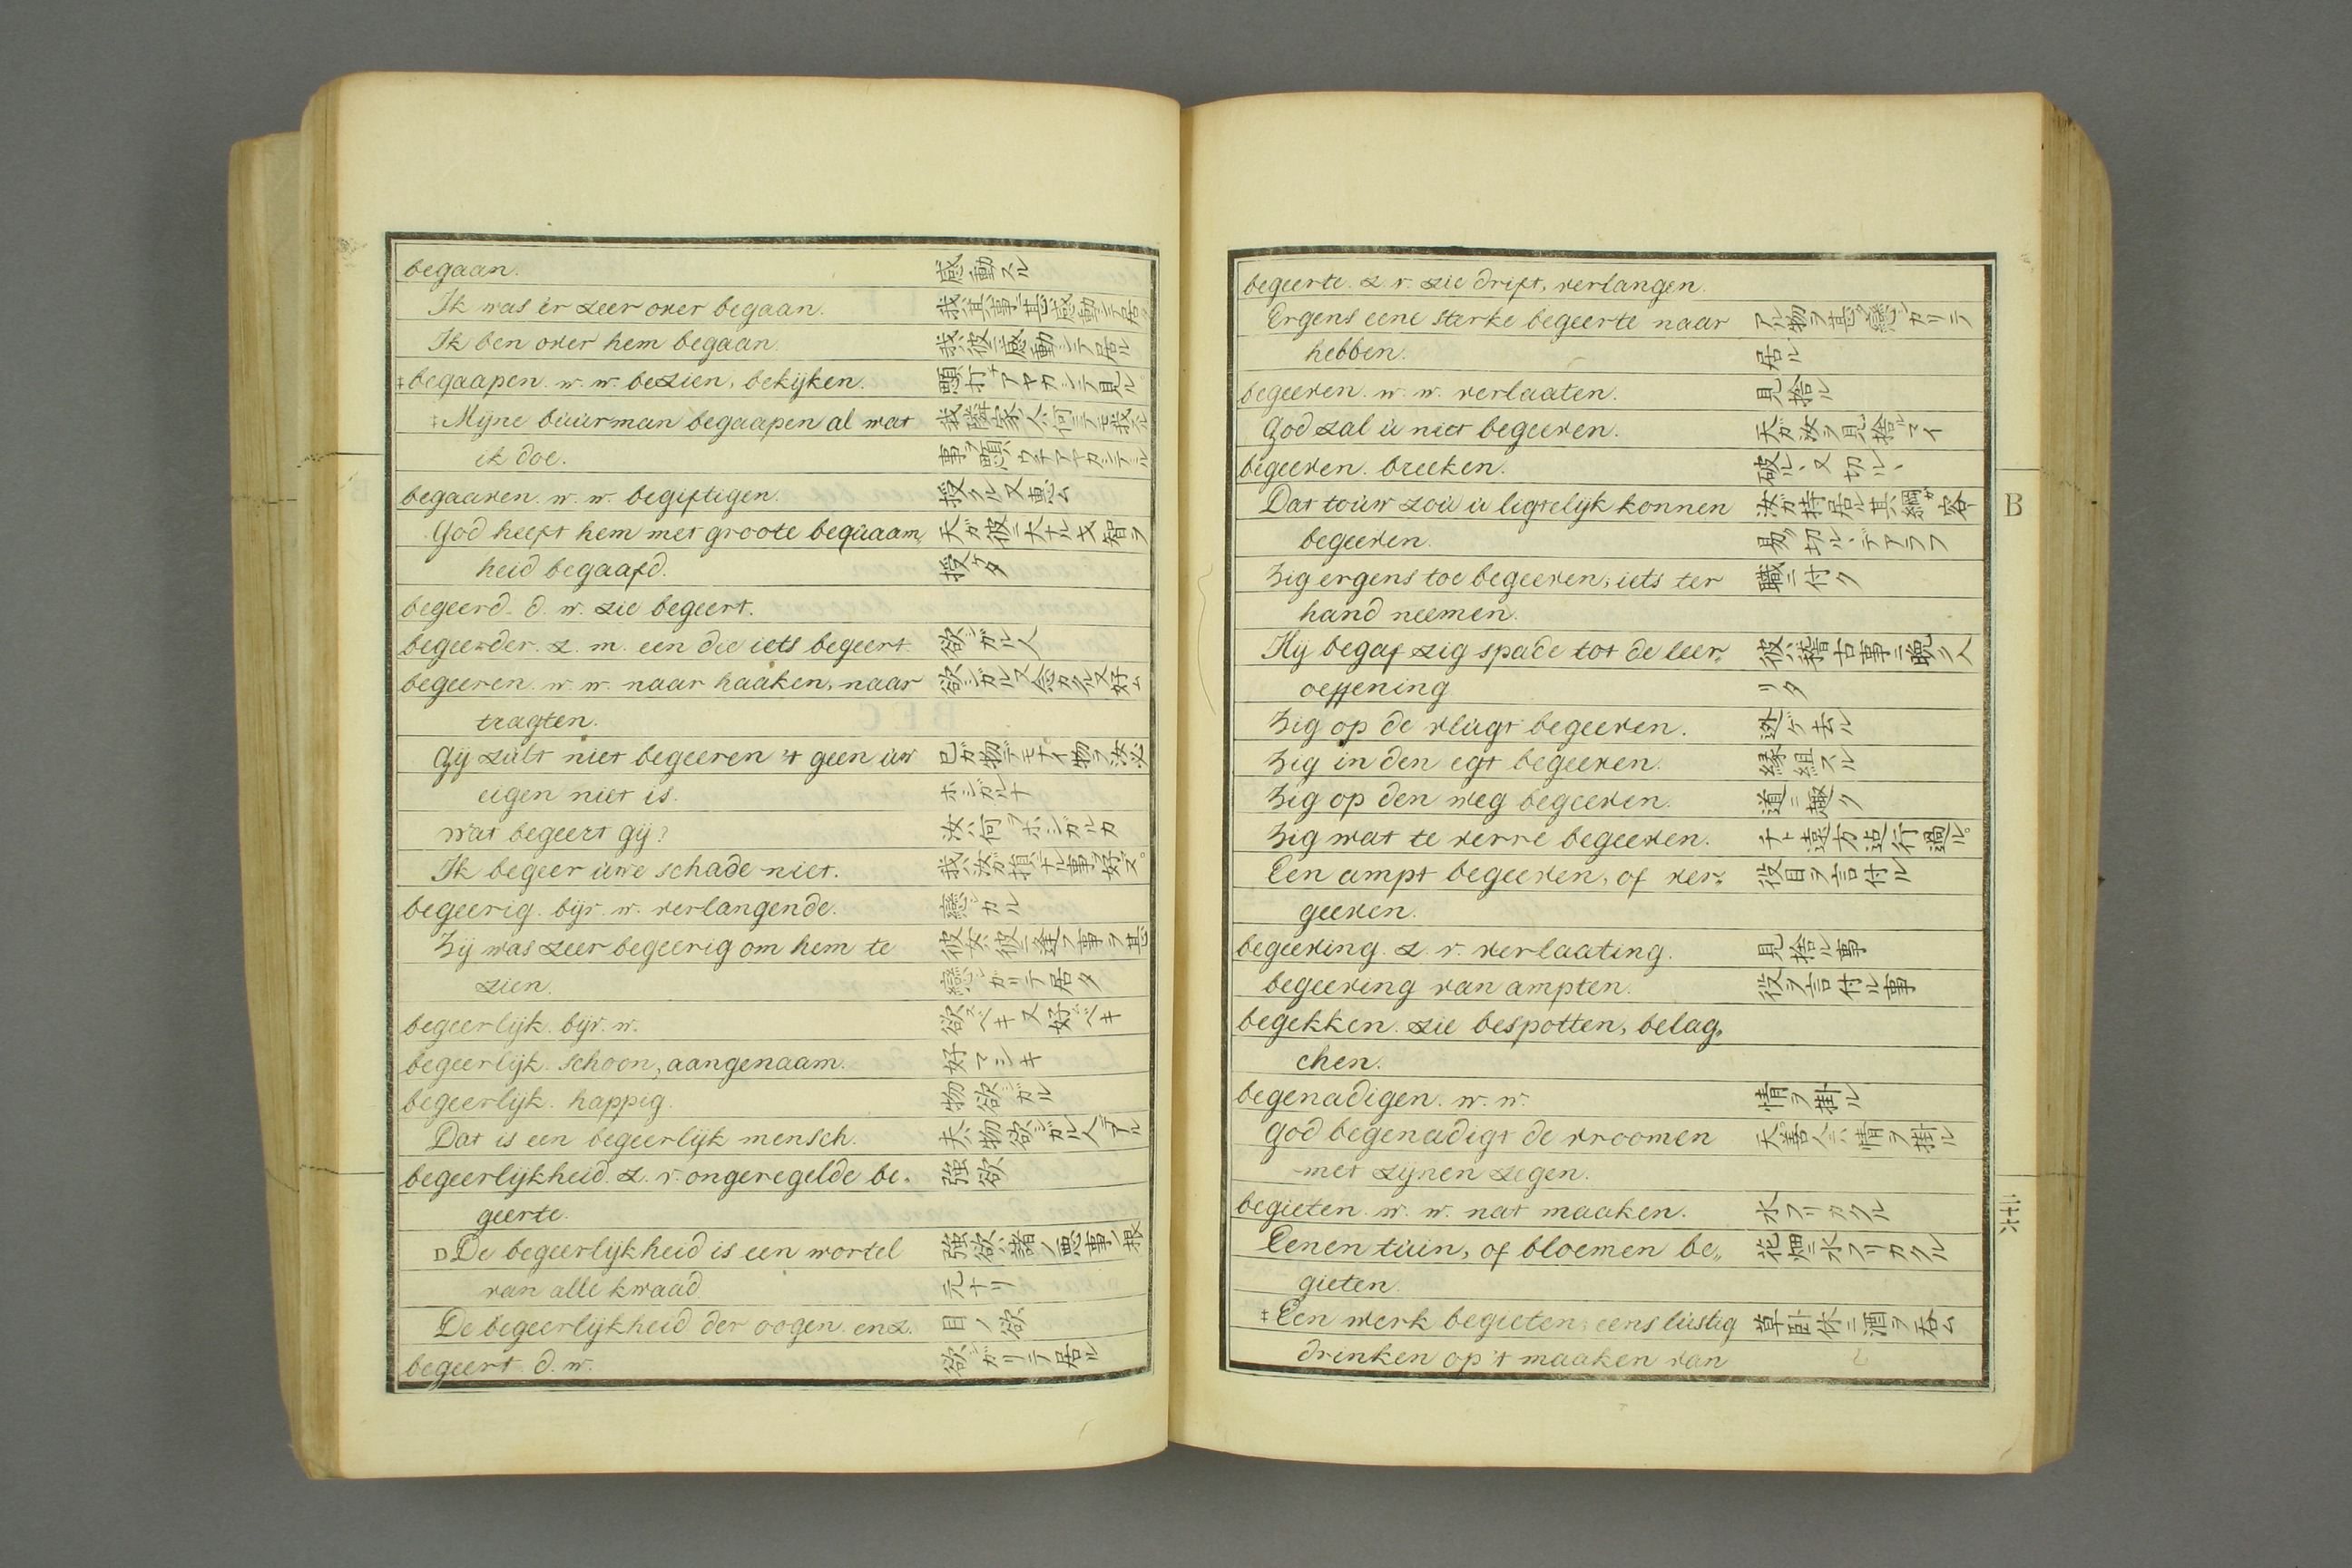 begaan. 感動スル
Ik was er zeer over begaan. 我其事ニ甚感動シテ居タ
Ik ben over hem begaan. 我彼ニ感動シテ居ル
‡begaapen. w. w. bezien, bekijken. 顋打アヤカシテ見ル。
‡Mijne buurman begaapen al wat
ik doe.
begaaven. w. w. begiftigen. 授クル又恵ム
God heeft hem met groote bequaam„ 天ガ彼ニ大ナル才智ヲ
heid begaafd. 授ケタ
begeerd. d. w. zie begeert.
begeerder. z. m. een die iets begeert. 欲ガル人
begeeren. w. w. naar haaken, naar 欲シガル又念カクル又好ム
tragten.
Gij zult niet begeeren 't geen uw 己ガ物デモナイ物ヲ汝必
eigen niet is. ホシガルナ
wat begeert gij? 汝ハ何ヲホシガルカ
Ik begeer uwe schade niet. 我ハ汝ガ損ナル事ヲ好マズ。
begeerig. bijv. w. verlangende. 戀ガル
Zij was zeer begeerig om hem te 彼女ハ彼ニ逢フ事ヲ甚
zien. 戀ガリテ居タ
begeerlijk. bijv. w. 欲ベキ又好ベキ
begeerlijk. schoon, aangenaam. 好マシキ
begeerlijk. happig. 物欲ガル
Dat is een begeerlijk mensch. 夫ハ物欲ガル人デアル
begeerlijkheid. z. v. ongeregelde be„ 強欲
geerte.
D De begeerlijkheid is een wortel 強欲ハ諸ノ悪事ノ根
van alle kwaad. 元ナリ
De begeerlijkheid der oogen. enz. 目ノ欲
begeert. d. w. 欲ガリテ居ル
begeerte. z. v. zie drift, verlangen.
Ergens eene sterke begeerte naar アル物ヲ甚ダ戀ガリテ
hebben. 居ル
begeeven. w. w. verlaaten. 見捨ル
God zal u niet begeeven. 天ガ汝ヲ見捨マイ
begeeven. breeken. 破ル、又切ル、
Dat touw zou u ligtelijk konnen 汝ガ持居ル其綱ガ容
begeeven. 易ク切ル、デアラフ
Zig ergens toe begeeven, iets ter 職ニ付ク
hand neemen.
Hij begaf zig spade tot de leer„ 彼ハ稽古事ニ晩ク入
oeffening リタ
Zig op de vlugt begeeven. 迯ゲ去ル
Zig in den egt begeeven. 縁組スル
Zig op den weg begeeven. 道ニ趣ク
Zig wat te verre begeeven. チト遠方迠行過ル。
Een ampt begeeven, of ver„ 役目ヲ言付ル
geeven.
begeeving. z. v. verlaating. 見捨ル事
begeeving van ampten. 役ヲ言付ル事
begekken. zie bespotten, belag„
chen.
begenadigen. w. w. 情ヲ掛ル
God begenadigt de vroomen 天ハ善人ニハ情ヲ掛ル
met zijnen zegen.
begieten. w. w. nat maaken. 水フリカクル
Eenen tuin, of bloemen be„ 花畑ニ水フリカクル
gieten.
‡Een werk begieten, eens lustig 草臥休ニ酒ヲ呑ム
drinken op 't maaken van
B